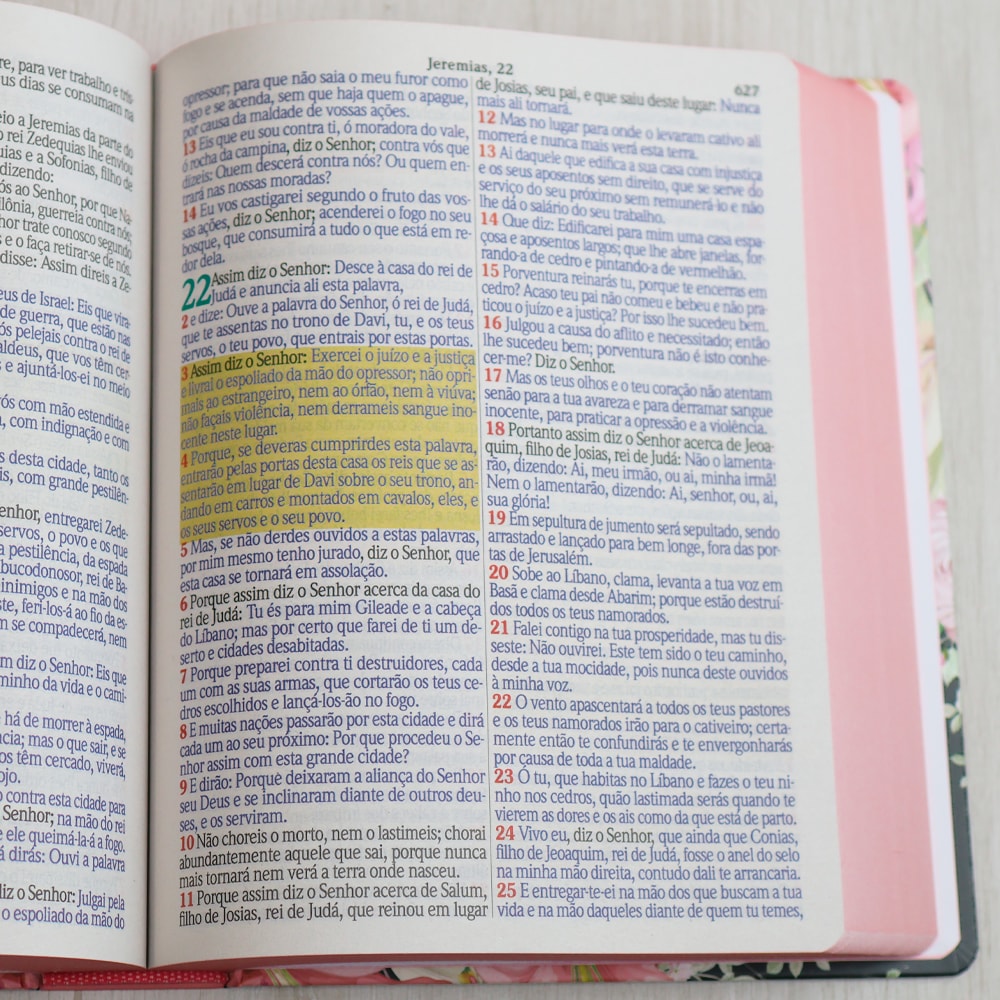 re, para ver trabalho e tris-
us dias se consumam na
eio a Jeremias da parte do
o rei Zedequias lhe enviou
quias e a Sofonias, filho de
dizendo:
ós ao Senhor, por que Na-
ilônia, guerreia contra nós;
hor trate conosco segundo
s e o faça retirar-se de nós.
disse: Assim direis a Ze-
eus de Israel: Eis que vira-
de guerra, que estão nas
s pelejais contra o rei de
aldeus, que vos têm cer-
e ajuntá-los-ei no meio
vós com mão estendida e
a, com indignação e com
s desta cidade, tanto os
is, com grande pestilên-
enhor, entregarei Zede-
servos, o povo e os que
a pestilência, da espada
abucodonosor, rei de Ba-
inimigos e na mão dos
ste, feri-los-á ao fio da es-
m se compadecerá, nem
m diz o Senhor: Eis que
minho da vida e o cami-
há de morrer à espada,
ncia; mas o que sair, e se
os têm cercado, viverá,
ojo.
o contra esta cidade para
Senhor; na mão do rei
e ele queimá-la-á a fogo.
á dirás: Ouvi a palavra
diz o Senhor: Julgai pela
o espoliado da mão do
Jeremias, 22
627
opressor; para que não saia o meu furor como
fogo e se acenda, sem que haja quem o apague,
por causa da maldade de vossas ações.
13 Eis que eu sou contra ti, ó moradora do vale,
ó rocha da campina, diz o Senhor; contra vós que
dizeis: Quem descerá contra nós? Ou quem en-
trará nas nossas moradas?
14 Eu vos castigarei segundo o fruto das vos-
sas ações, diz o Senhor; acenderei o fogo no seu
bosque, que consumirá a tudo o que está em re-
dor dela.
22 Assim diz o Senhor: Desce à casa do rei de
Judá e anuncia ali esta palavra,
2 e dize: Ouve a palavra do Senhor, ó rei de Judá,
que te assentas no trono de Davi, tu, e os teus
servos, o teu povo, que entrais por estas portas.
3 Assim diz o Senhor: Exercei o juízo e a justiça
e livrai o espoliado da mão do opressor; não opri-
mais ao estrangeiro, nem ao órfão, nem à viúva;
não façais violência, nem derrameis sangue ino-
cente neste lugar.
4 Porque, se deveras cumprirdes esta palavra,
entrarão pelas portas desta casa os reis que se as-
sentarão em lugar de Davi sobre o seu trono, an-
dando em carros e montados em cavalos, eles, e
os seus servos e o seu povo.
5 Mas, se não derdes ouvidos a estas palavras,
por mim mesmo tenho jurado, diz o Senhor, que
esta casa se tornará em assolação.
6 Porque assim diz o Senhor acerca da casa do
rei de Judá: Tu és para mim Gileade e a cabeça
do Líbano; mas por certo que farei de ti um de-
serto e cidades desabitadas.
7 Porque preparei contra ti destruidores, cada
um com as suas armas, que cortarão os teus ce-
dros escolhidos e lançá-los-ão no fogo.
8 E muitas nações passarão por esta cidade e dirá
cada um ao seu próximo: Por que procedeu o Se-
nhor assim com esta grande cidade?
9 E dirão: Porque deixaram a aliança do Senhor
seu Deus e se inclinaram diante de outros deu-
ses, e os serviram.
10 Não choreis o morto, nem o lastimeis; chorai
abundantemente aquele que sai, porque nunca
mais tornará nem verá a terra onde nasceu.
11 Porque assim diz o Senhor acerca de Salum,
filho de Josias, rei de Judá, que reinou em lugar
de Josias, seu pai, e que saiu deste lugar: Nunca
mais ali tornará.
12 Mas no lugar para onde o levaram cativo ali
morrerá e nunca mais verá esta terra.
13 Ai daquele que edifica a sua casa com injustiça
e os seus aposentos sem direito, que se serve do
serviço do seu próximo sem remunerá-lo e não
lhe dá o salário do seu trabalho.
14 Que diz: Edificarei para mim uma casa espa-
çosa e aposentos largos; que lhe abre janelas, for-
rando-a de cedro e pintando-a de vermelhão.
15 Porventura reinarás tu, porque te encerras em
cedro? Acaso teu pai não comeu e bebeu e não pra-
ticou o juízo e a justiça? Por isso lhe sucedeu bem.
16 Julgou a causa do aflito e necessitado; então
lhe sucedeu bem; porventura não é isto conhe-
cer-me? Diz o Senhor.
17 Mas os teus olhos e o teu coração não atentam
senão para a tua avareza e para derramar sangue
inocente, para praticar a opressão e a violência.
18 Portanto assim diz o Senhor acerca de Jeoa-
quim, filho de Josias, rei de Judá: Não o lamenta-
rão, dizendo: Ai, meu irmão, ou ai, minha irmã!
Nem o lamentarão, dizendo: Ai, senhor, ou, ai,
sua glória!
19 Em sepultura de jumento será sepultado, sendo
arrastado e lançado para bem longe, fora das por-
tas de Jerusalém.
20 Sobe ao Líbano, clama, levanta a tua voz em
Basã e clama desde Abarim; porque estão destruí-
dos todos os teus namorados.
21 Falei contigo na tua prosperidade, mas tu dis-
seste: Não ouvirei. Este tem sido o teu caminho,
desde a tua mocidade, pois nunca deste ouvidos
à minha voz.
22 O vento apascentará a todos os teus pastores
e os teus namorados irão para o cativeiro; certa-
mente então te confundirás e te envergonharás
por causa de toda a tua maldade.
23 Ó tu, que habitas no Líbano e fazes o teu ni-
nho nos cedros, quão lastimada serás quando te
vierem as dores e os ais como da que está de parto.
24 Vivo eu, diz o Senhor, que ainda que Conias,
filho de Jeoaquim, rei de Judá, fosse o anel do selo
na minha mão direita, contudo dali te arrancaria.
25 E entregar-te-ei na mão dos que buscam a tua
vida e na mão daqueles diante de quem tu temes,